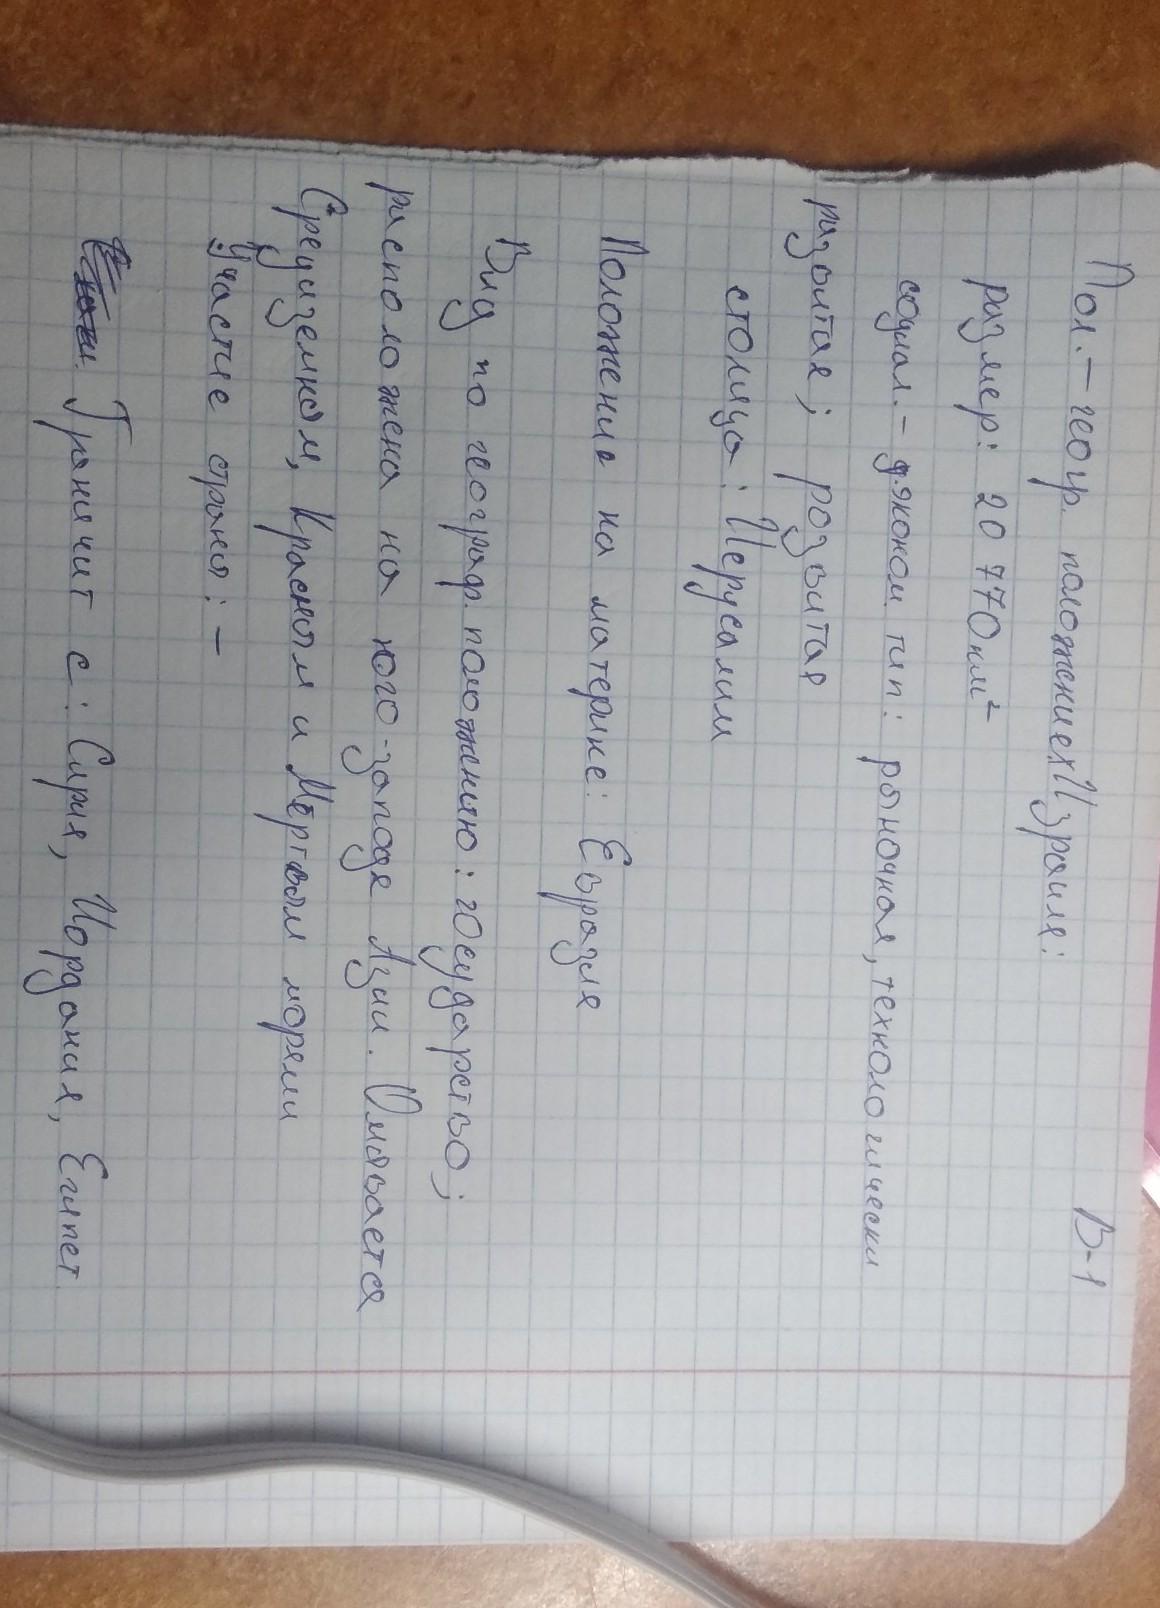 В-1
Пол.-геогр. положение Израиля:
размер: 20 770км²
социал.-эконом тип: рыночная, технологически
развитая; развитая
столица: Иерусалим
Положение на материке: Евразия
Вид по географ. положению: государство;
расположена на юго-западе Азии. Омывается
Средиземном, Красном и Мёртвом морями
Участие страны: -
Граничит с: Сирия, Иордания, Египет